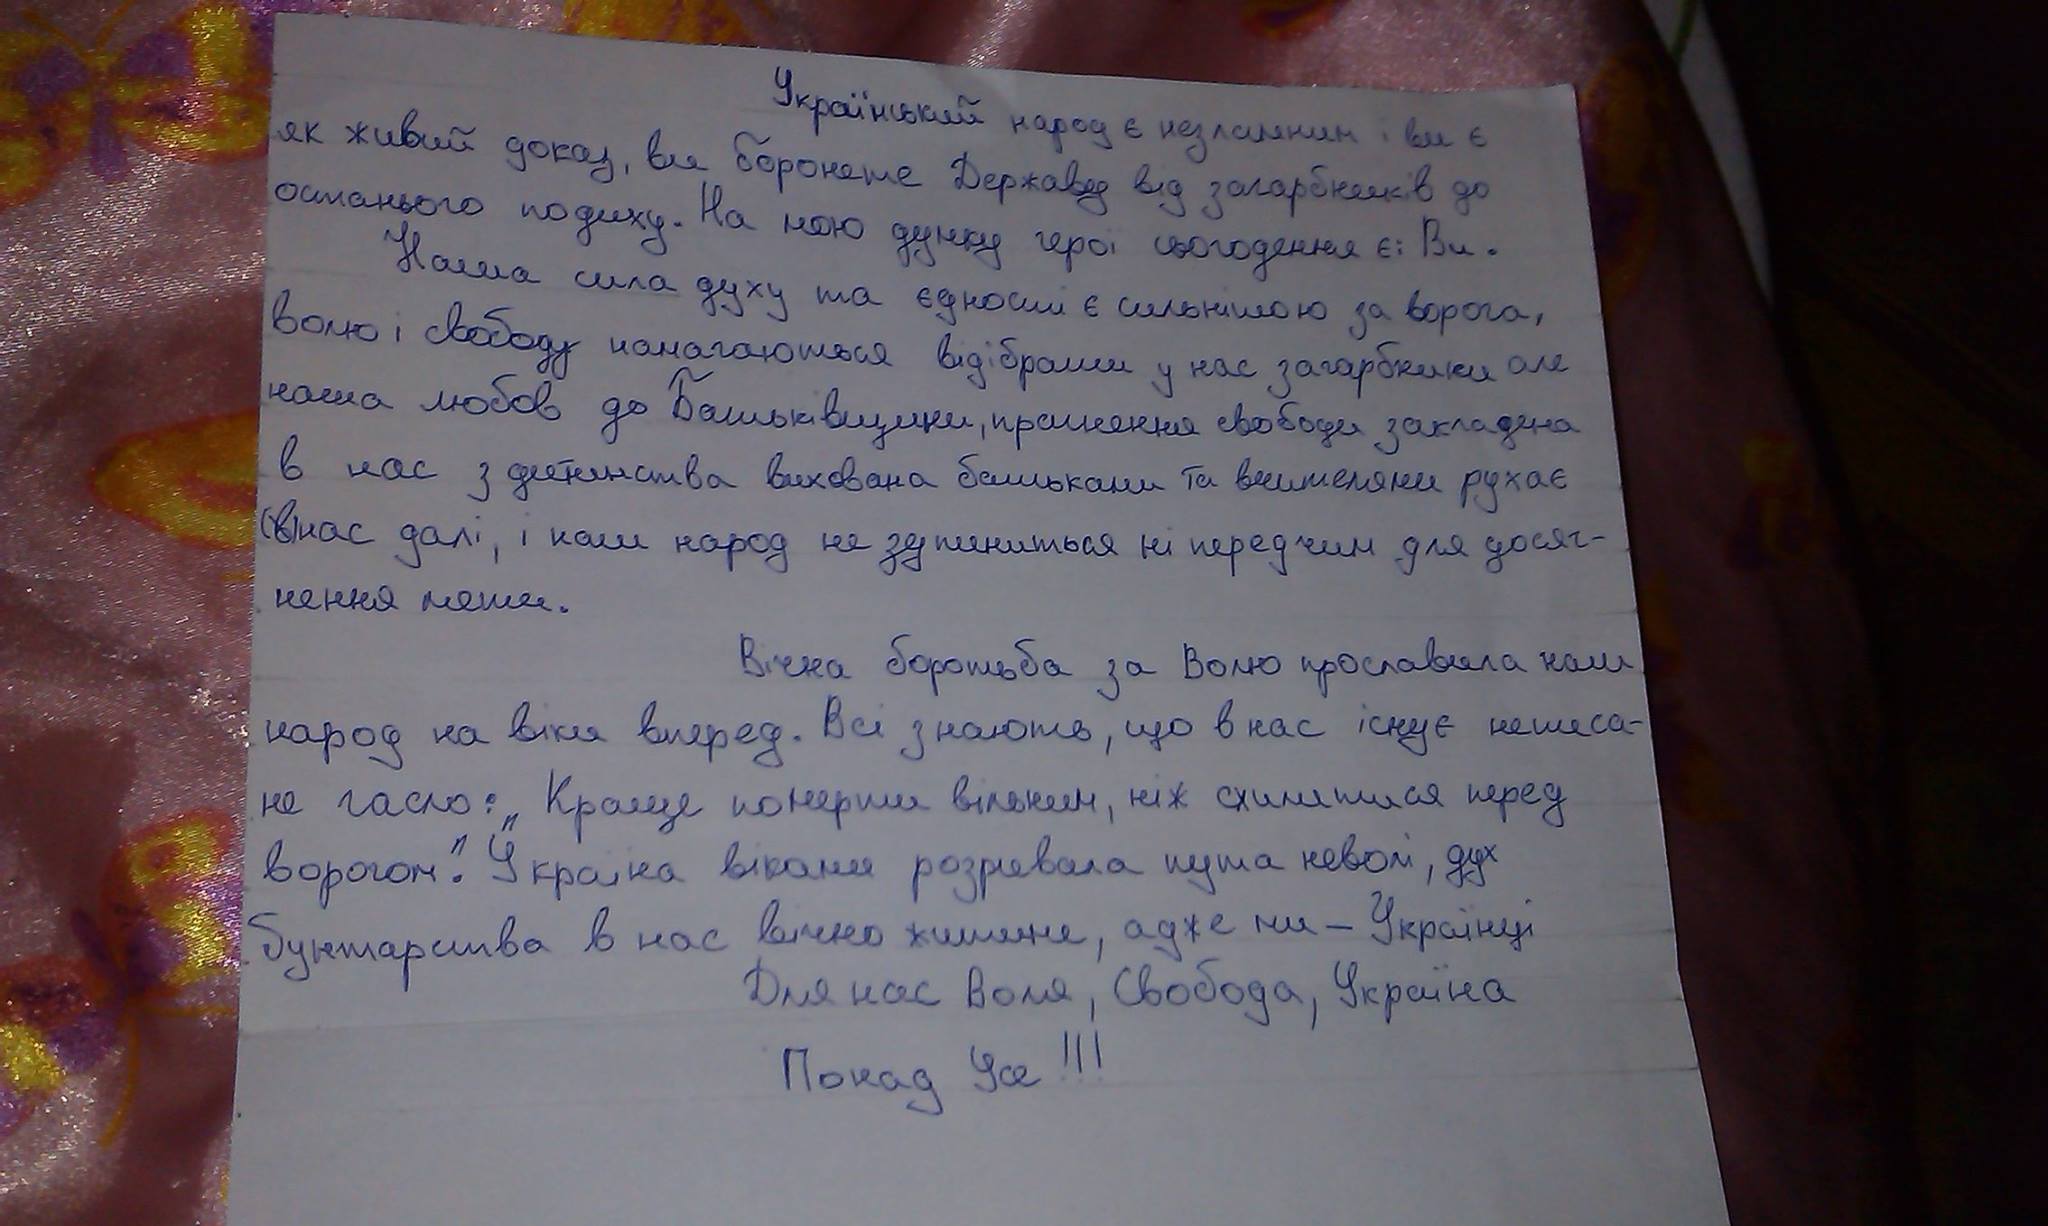 Український народ є незламним і ви є
як живий доказ, ви бороните Державу від загарбників до
останнього подиху. На мою думку герої сьогодення є: Ви.
Наша сила духу та єдності є сильнішою за ворога,
волю і свободу намагаються відібрати у нас загарбники але
наша любов до Батьківщини, прагнення свободи закладена
в нас з дитинства вихована батьками та вчителями рухає
(в)нас далі, і наш народ не зупиниться ні перед чим для досяг-
нення мети.
Вічна боротьба за Волю прославила наш
народ на віки вперед. Всі знають, що в нас існує неписа-
не гасло: „Краще померти вільним, ніж схилитися перед
ворогом". Україна віками розривала пута неволі, дух
бунтарства в нас вічно житиме, адже ми – Українці
Для нас Воля, Свобода, Україна
Понад Усе!!!